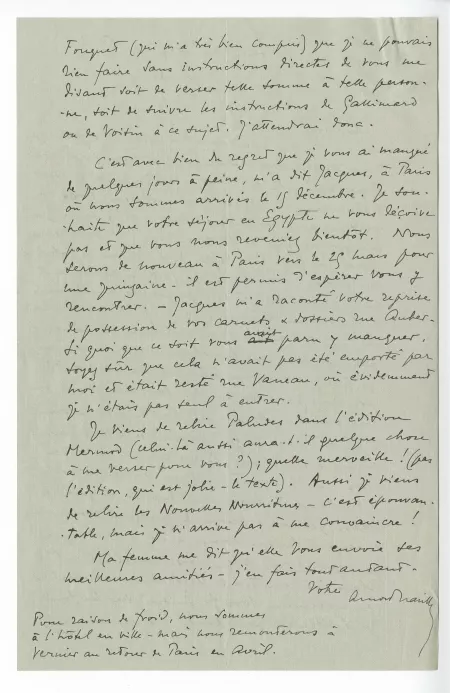 Fouquet (qui m'a très bien compris) que je ne pouvais
rien faire sans instructions directes de vous me
disant soit de verser telle somme à telle person-
-ne, soit de suivre les instructions de Gallimard
ou de Voitin à ce sujet. J'attendrai donc.
C'est avec bien du regret que je vous ai manqué
de quelques jours à peine, m'a dit Jacques, à Paris
où nous sommes arrivés le 15 décembre. Je sou-
-haite que votre séjour en Egypte ne vous déçoive
pas et que vous nous reveniez bientôt. Nous
serons de nouveau à Paris vers le 25 mars pour
une quinzaine - il est permis d'espérer vous y
rencontrer. - Jacques m'a raconté votre reprise
de possession de vos carnets & dossiers rue Auber-
Si quoi que ce soit vous avait paru y manquer,
soyez sûr que cela n'avait pas été emporté par
moi et était resté rue Vaneau, où évidemment
je n'étais pas seul à entrer.
Je viens de relire Paludes dans l'édition
Mermod (celui-là aussi aura-t-il quelque chose
à me verser pour vous ?); quelle merveille ! (pas
l'édition, qui est jolie - le texte). Aussi je viens
de relire les Nouvelles Nourritures - c'est épouvan-
-table, mais je n'arrive pas à me convaincre !
Ma femme me dit qu'elle vous envoie ses
meilleures amitiés - j'en fais tout autant -
Votre
Arnold Naville
Pour raison de froid, nous sommes
à l'hôtel en ville - mais nous remonterons à
Vernier au retour de Paris en Avril.